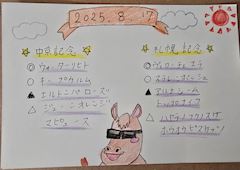 2025. 8. 17
中京記念
◎ ウォーターリヒト
○ キープカルム
▲ エルトンバローズ
△ ジューンオレンジ
マピュース
札幌記念
◎ ヴェローチェエラ
○ ステレンボッシュ
▲ アルナシーム
トップナイフ
△ ハヤテノフクノスケ
ホウオウビスケッツ